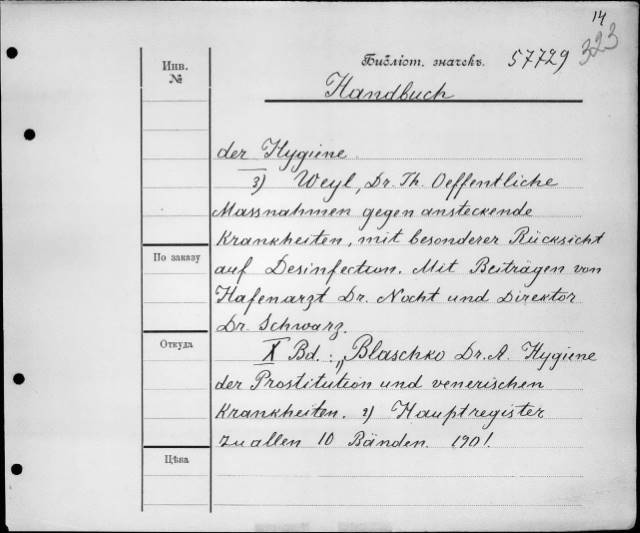 14
323
Инв. №
Библіот. значекъ. 57729
Handbuch
der Hygiene
3) Weyl, Dr. Th. Oeffentliche
Massnahmen gegen ansteckende
Krankheiten, mit besonderer Rücksicht
По заказу
auf Desinfection. Mit Beiträgen von
Hafenarzt Dr. Nocht und Direktor
Dr. Schwarz.
Откуда
X Bd.: 1) Blaschko Dr. A. Hygiene
der Prostitution und venerischen
Krankheiten. 2) Hauptregister
zu allen 10 Bänden. 1901.
Цѣна